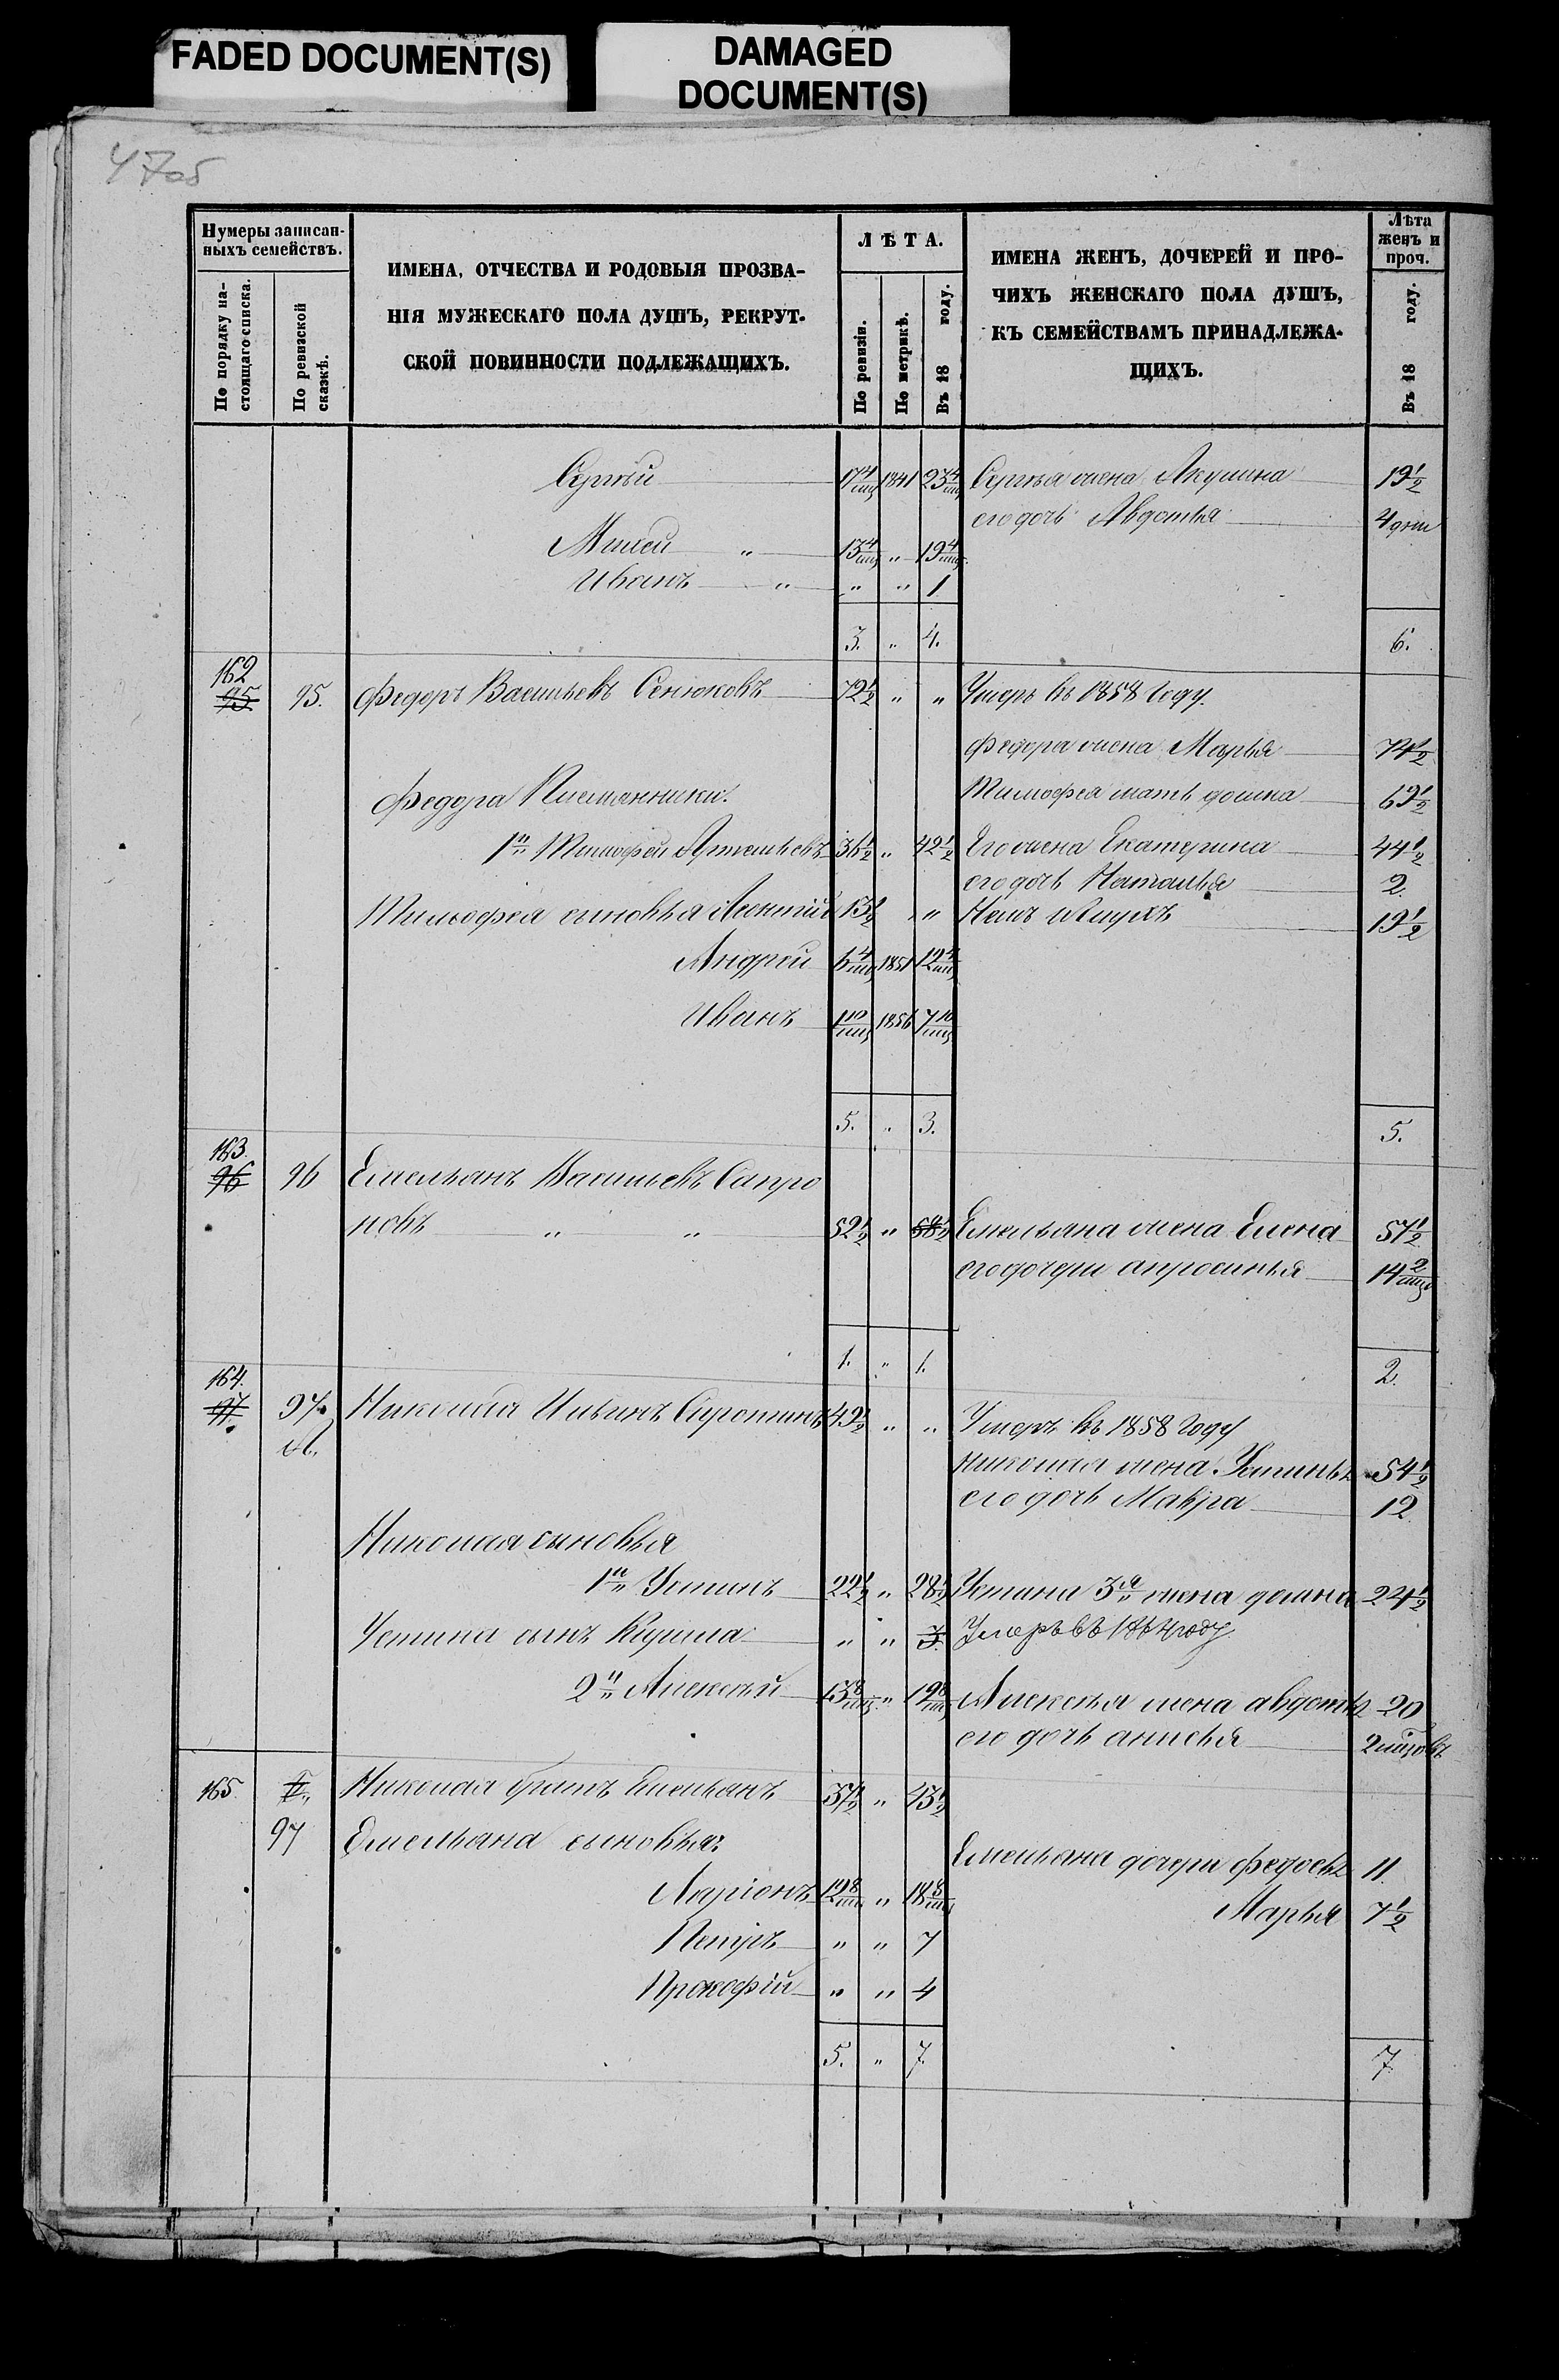 FADED DOCUMENT(S)
DAMAGED
DOCUMENT(S)
47об
Нумеры записан-
ныхъ семействъ.
По порядку на-
стоящаго списка.
По ревизской
сказкѣ.
ИМЕНА, ОТЧЕСТВА И РОДОВЫЯ ПРОЗВА-
НІЯ МУЖЕСКАГО ПОЛА ДУШЪ, РЕКРУТ-
СКОЙ ПОВИННОСТИ ПОДЛЕЖАЩИХЪ.
ЛѢТА.
По ревизіи.
По метрикѣ.
Въ 18 году.
ИМЕНА ЖЕНЪ, ДОЧЕРЕЙ И ПРО-
ЧИХЪ ЖЕНСКАГО ПОЛА ДУШЪ,
КЪ СЕМЕЙСТВАМЪ ПРИНАДЛЕЖА-
ЩИХЪ.
Лѣта
женъ и
проч.
Въ 18 году.
Сергѣй 17 4/мц 1841 23 4/мц Сергѣя жена Акулина 19 1/2
его дочь Авдотья 4 дни
Михей " 13 4/мц " 19 4/мц
Иванъ " " " 1
3. " 4. 6.
162
95 95. Федоръ Васильевъ Сенюковъ 72 1/2 " " Умеръ въ 1858 году.
Федора жена Марья 74 1/2
Федора Племянники. Тимофея мать домна 69 1/2
1й Тимофей Артемьевъ 36 1/2 " 42 1/2 Его жена Екатерина 44 1/2
его дочь Наталья 2
Тимофея сыновья Леонтій 13 1/2 " 19 1/2
Андрей 6 4/мц 1851 12 4/мц
Иванъ 1 10/мц 1856 7 10/мц
5. " 3. 5.
163.
96 96 Емельянъ Васильевъ Сапро
новъ " " 52 1/2 " 58 1/2 Емельяна жена Елена 57 1/2
его дочери апросинья 14 2/мц
1. " 1. 2.
164.
97. 97. Николай Ильинъ Сиротинъ 49 1/2 " " Умеръ въ 1858 году
А. Николая жена Устинья 54 1/2
его дочь Мавра 12
Николая сыновья
1й Устинъ 22 1/2 " 28 1/2 Устина 3я жена домна 24 1/2
Устина сынъ Кузьма " " 3. Умеръ въ 1864 году
2й Алексѣй 13 8/мц " 19 8/мц Алексѣя жена авдотья 20
его дочь анисья 2 мѣцовъ
165. Б. Николая братъ Емельянъ 37 1/2 " 43 1/2
97 Емельяна сыновья:
Емельяна дочери федосья 11
Ларіонъ 12 8/мц " 18 8/мц
Марья 7 1/2
Петръ " " 7
Прокофій " " 4
5. " 7. 7